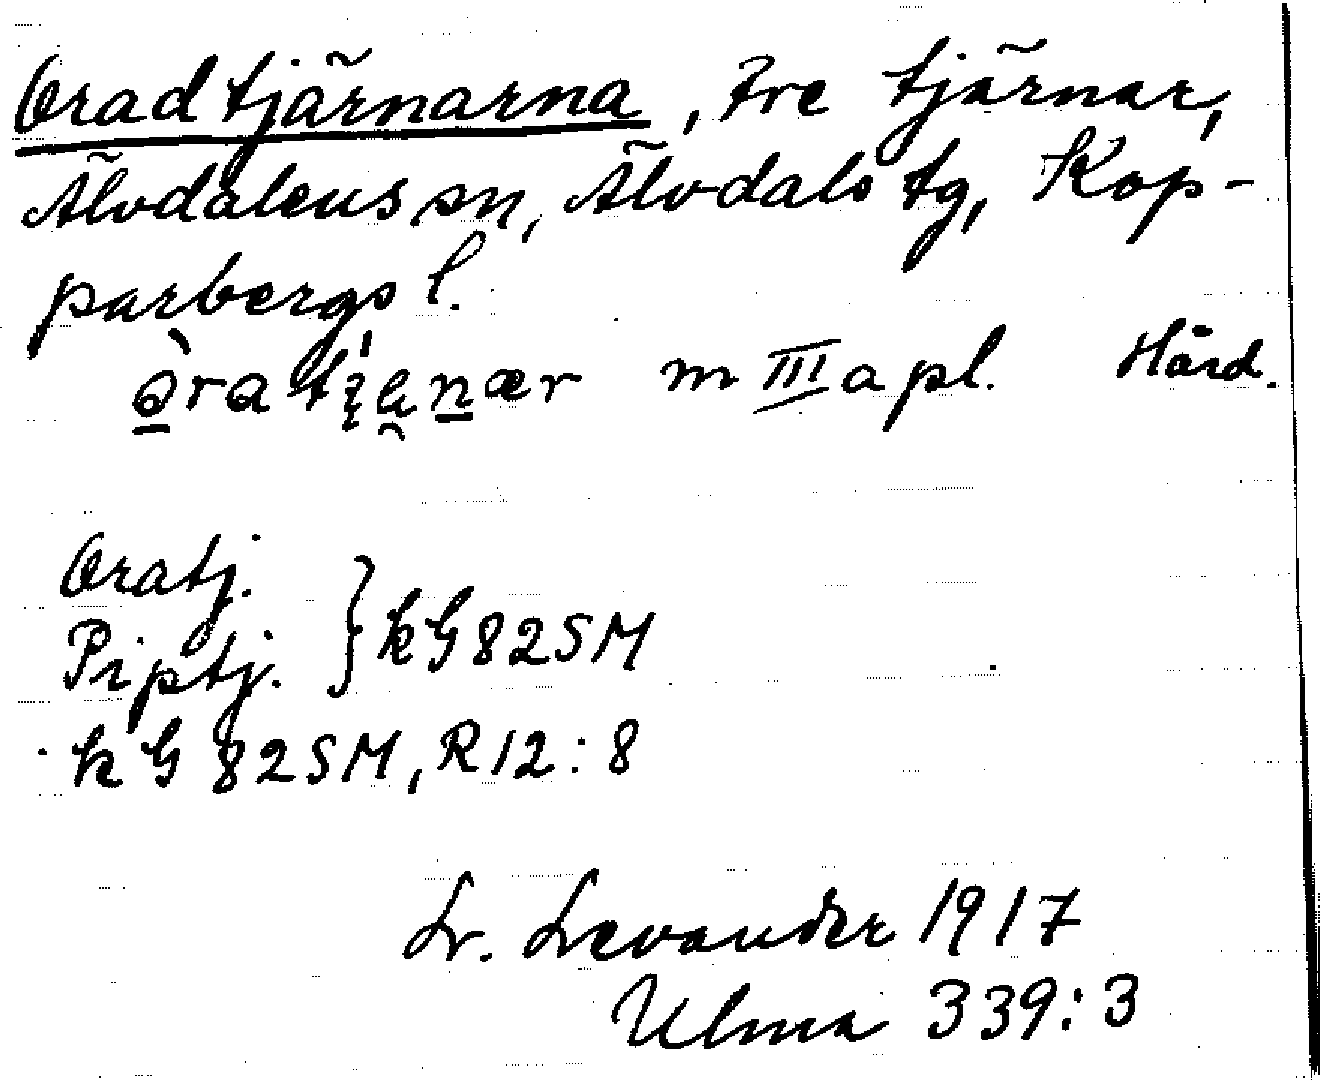 Oradtjärnarna, tre tjärnar,
Älvdalens sn, Älvdals tg, Kop-
parbergs l.
m III a pl. Hård.
Oratj.
Piptj. } kG82SM
kG82SM, R12:8
Lr. Levander 1917
Ulma 339:3